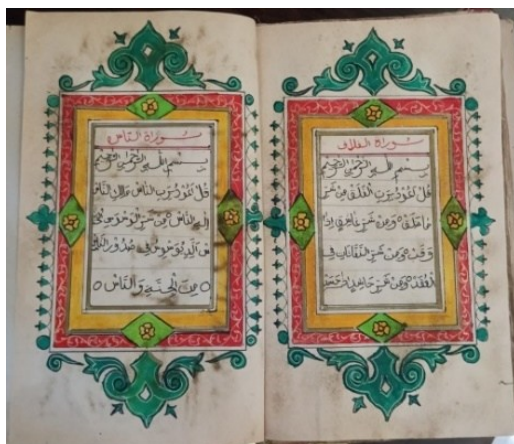 سوراة الفلاق
بسم الله الرحمن الرحيم
قل اعوذ برب الفلق من شر
ما خلق ومن شر غاسق اذا
وقب ومن شر النفاثات في
العقد ومن شر حاسد اذا حسد
سوراة الناس
بسم الله الرحمن الرحيم
قل اعوذ برب الناس ملك الناس
اله الناس من شر الوسواس الخنا
س الذي يوسوس في صدور الناس
من الجنة والناس